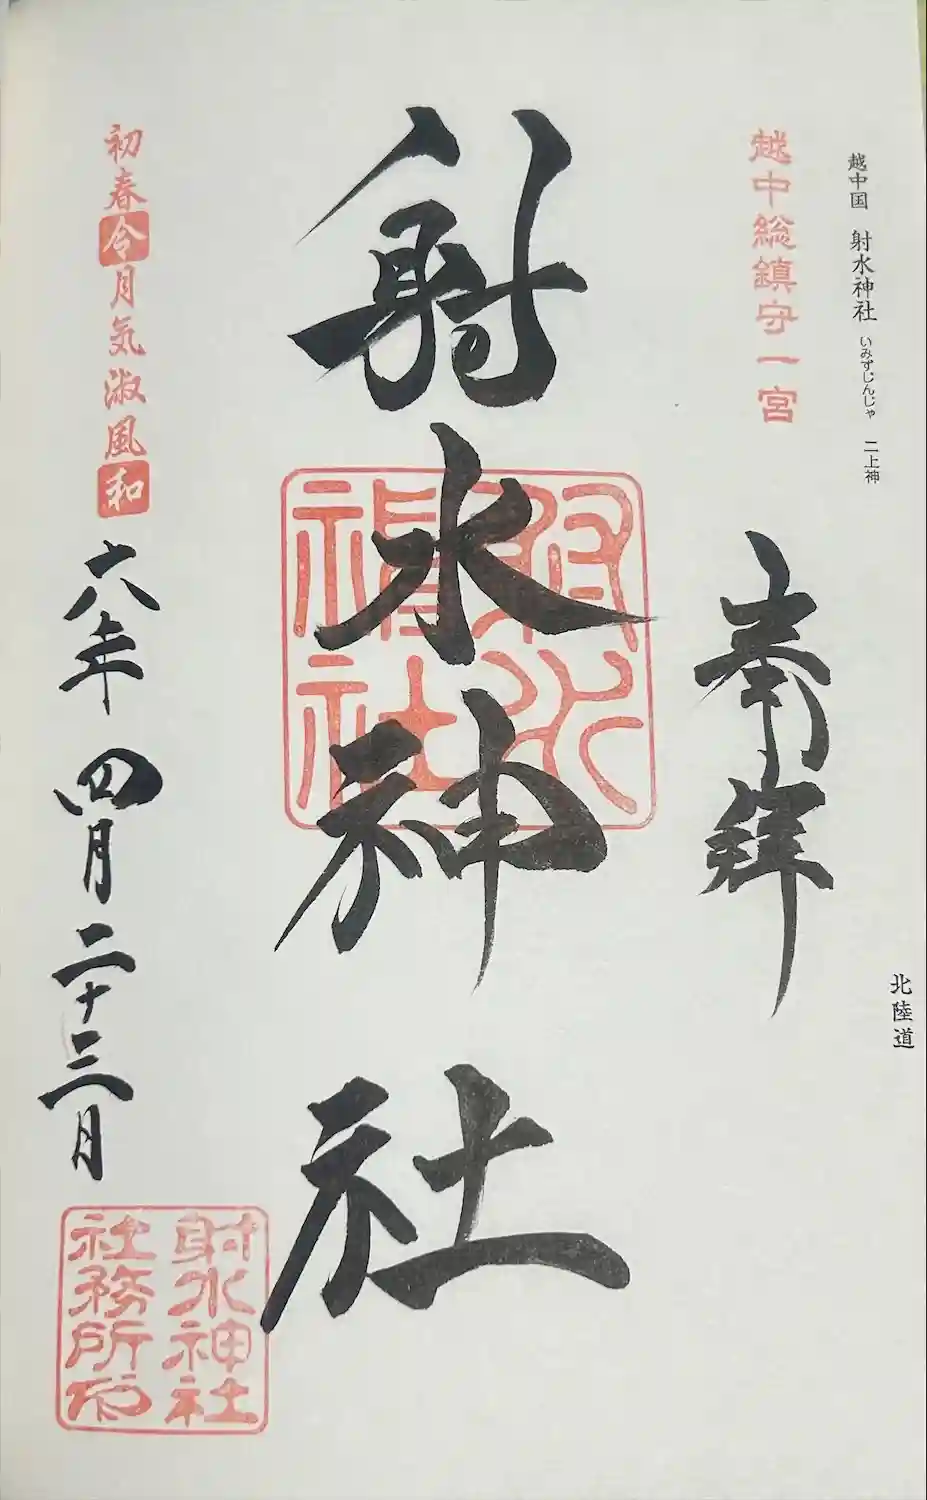 越中国 射水神社 いみずじんじゃ 二上神
北陸道
越中総鎮守一宮
奉拝
射水神社
射水神社
初春令月気淑風和
六年 四月 二十三日
射水神社
社務所印